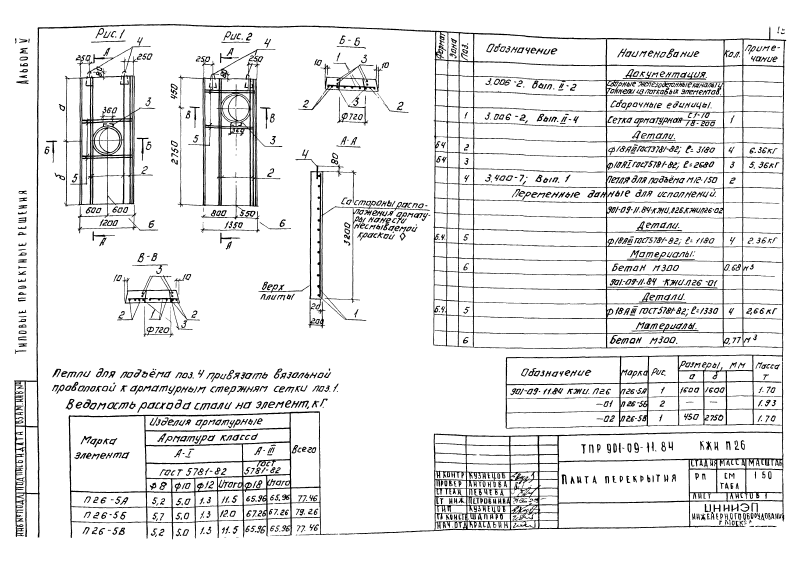 Альбом V
Типовые проектные решения
Рис. 1
Рис. 2
Б-Б
А-А
В-В
А
4
250
250
а
360
3
Б
Б
5
2
б
600
600
1200
6
А
250
250
4
450
2750
В
В
5
250
3
2
800
550
1350
6
А
10
1
3
10
2
2
ф720
4
80
3200
Со стороны распо-
ложения армату-
ры нанести
несмываемой
краской
Верх
плиты
20
200
1
10
3
10
2
2
3
ф720
Петли для подъёма поз. 4 привязать вязальной
проволокой к арматурным стержням сетки поз. 1.
Ведомость расхода стали на элемент, кг.
Марка элемента
Изделия арматурные
Арматура класса
Всего
А-I
А-III
ГОСТ 5781-82
ГОСТ 5781-82
ф8 ф10 ф12 Итого ф18 Итого
П26-5А 5,2 5,0 1.3 11.5 65.96 65.96 77.46
П26-5Б 5,7 5.0 1.3 12.0 67.26 67.26 79.26
П26-5В 5,2 5.0 1.3 11.5 65.96 65.96 77.46
Формат Зона Поз. Обозначение Наименование Кол. Приме-
чание
Документация.
3.006-2. Вып. II-2 Сборные железобетонные каналы и
тоннели из лотковых элементов.
Сборочные единицы.
1 3.006-2, Вып. II-4 Сетка арматурная С1-10 / 18-200 1
Детали.
Б.4 2 ф18АIII ГОСТ5781-82; ℓ=3180 4 6.36кг
Б.4 3 ф18АIII ГОСТ5781-82; ℓ=2680 3 5,36кг
4 3.400-7; Вып. 1 Петля для подъёма М12-150 2
Переменные данные для исполнений.
901-09-11.84 КЖИ.П26, КЖИ.П26-02
Детали.
Б.4. 5 ф18АIII ГОСТ5781-82; ℓ=1180 4 2.36кг
Материалы:
6 Бетон М300 0,68 м³
901-09-11.84 КЖИ.П26-01
Детали.
Б.4. 5 ф18АIII ГОСТ5781-82; ℓ=1330 4 2,66кг
Материалы.
6 Бетон М300. 0,77 м³
Обозначение Марка Рис. Размеры, мм Масса
т
а б
901-09-11.84 КЖИ.П26 П26-5А 1 1600 1600 1.70
-01 П26-5Б 2 — — 1.93
-02 П26-5В 1 450 2750 1.70
ТПР 901-09-11.84 КЖИ П26
Плита перекрытия
Стадия Масса Масштаб
РП СМ
ТАБЛ 1:50
Лист Листов 1
ЦНИИЭП
инженерного оборудования
г. Москва
Н.контр Кузнецов
Провер Антонова
Ст.техн Певчева
Ст. инж. Петровнина
Гип Кузнецов
Гл.конст Шапиро
Нач.отд Красавин